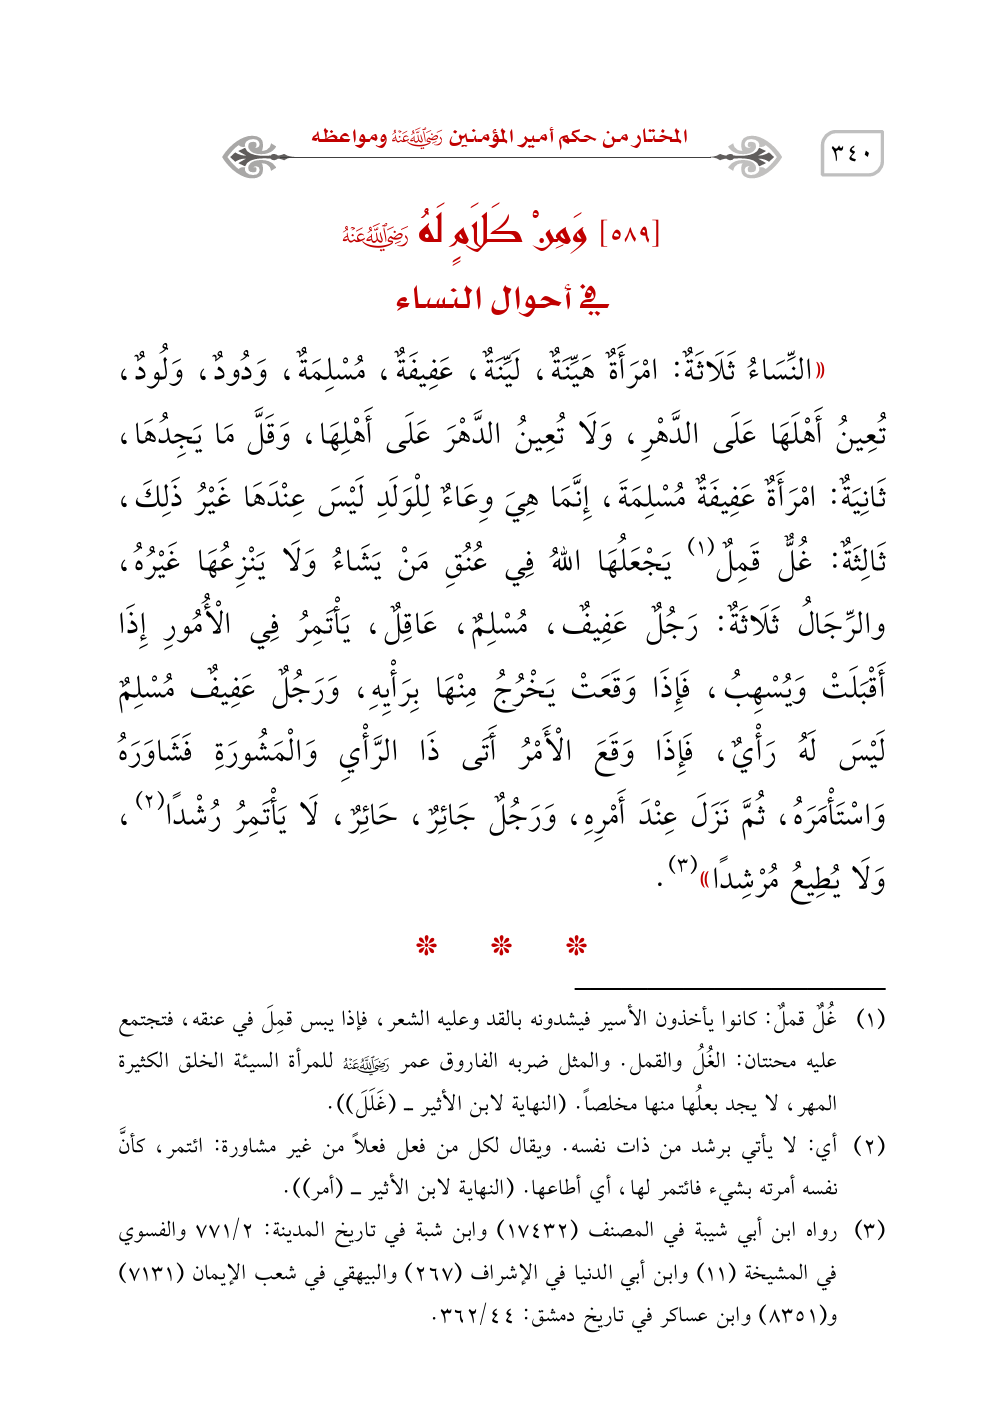 المختار من حكم أمير المؤمنين رَضِيَاللَّهُعَنْهُ ومواعظه
٣٤٠
[٥٨٩] وَمِنْ كَلَامٍ لَهُ رَضِيَاللَّهُعَنْهُ
في أحوال النساء
«النِّسَاءُ ثَلَاثَةٌ: امْرَأَةٌ هَيِّنَةٌ، لَيِّنَةٌ، عَفِيفَةٌ، مُسْلِمَةٌ، وَدُودٌ، وَلُودٌ،
تُعِينُ أَهْلَهَا عَلَى الدَّهْرِ، وَلَا تُعِينُ الدَّهْرَ عَلَى أَهْلِهَا، وَقَلَّ مَا يَجِدُهَا،
ثَانِيَةٌ: امْرَأَةٌ عَفِيفَةٌ مُسْلِمَةَ، إِنَّمَا هِيَ وِعَاءٌ لِلْوَلَدِ لَيْسَ عِنْدَهَا غَيْرُ ذَلِكَ،
ثَالِثَةٌ: غُلٌّ قَمِلٌ(١) يَجْعَلُهَا اللهُ فِي عُنُقِ مَنْ يَشَاءُ وَلَا يَنْزِعُهَا غَيْرُهُ،
والرِّجَالُ ثَلَاثَةٌ: رَجُلٌ عَفِيفٌ، مُسْلِمٌ، عَاقِلٌ، يَأْتَمِرُ فِي الْأُمُورِ إِذَا
أَقْبَلَتْ وَيُسْهِبُ، فَإِذَا وَقَعَتْ يَخْرُجُ مِنْهَا بِرَأْيِهِ، وَرَجُلٌ عَفِيفٌ مُسْلِمٌ
لَيْسَ لَهُ رَأْيٌ، فَإِذَا وَقَعَ الْأَمْرُ أَتَى ذَا الرَّأْيِ وَالْمَشُورَةِ فَشَاوَرَهُ
وَاسْتَأْمَرَهُ، ثُمَّ نَزَلَ عِنْدَ أَمْرِهِ، وَرَجُلٌ جَائِرٌ، حَائِرٌ، لَا يَأْتَمِرُ رُشْدًا(٢)،
وَلَا يُطِيعُ مُرْشِدًا»(٣).
(١) غُلٌ قملٌ: كانوا يأخذون الأسير فيشدونه بالقد وعليه الشعر، فإذا يبس قمِلَ في عنقه، فتجتمع
عليه محنتان: الغُلُ والقمل. والمثل ضربه الفاروق عمر رَضِيَاللَّهُعَنْهُ للمرأة السيئة الخلق الكثيرة
المهر، لا يجد بعلُها منها مخلصاً. (النهاية لابن الأثير ـ (غَلَلَ)).
(٢) أي: لا يأتي برشد من ذات نفسه. ويقال لكل من فعل فعلاً من غير مشاورة: ائتمر، كأنَّ
نفسه أمرته بشيء فائتمر لها، أي أطاعها. (النهاية لابن الأثير ـ (أمر)).
(٣) رواه ابن أبي شيبة في المصنف (١٧٤٣٢) وابن شبة في تاريخ المدينة: ٧٧١/٢ والفسوي
في المشيخة (١١) وابن أبي الدنيا في الإشراف (٢٦٧) والبيهقي في شعب الإيمان (٧١٣١)
و(٨٣٥١) وابن عساكر في تاريخ دمشق: ٣٦٢/٤٤.